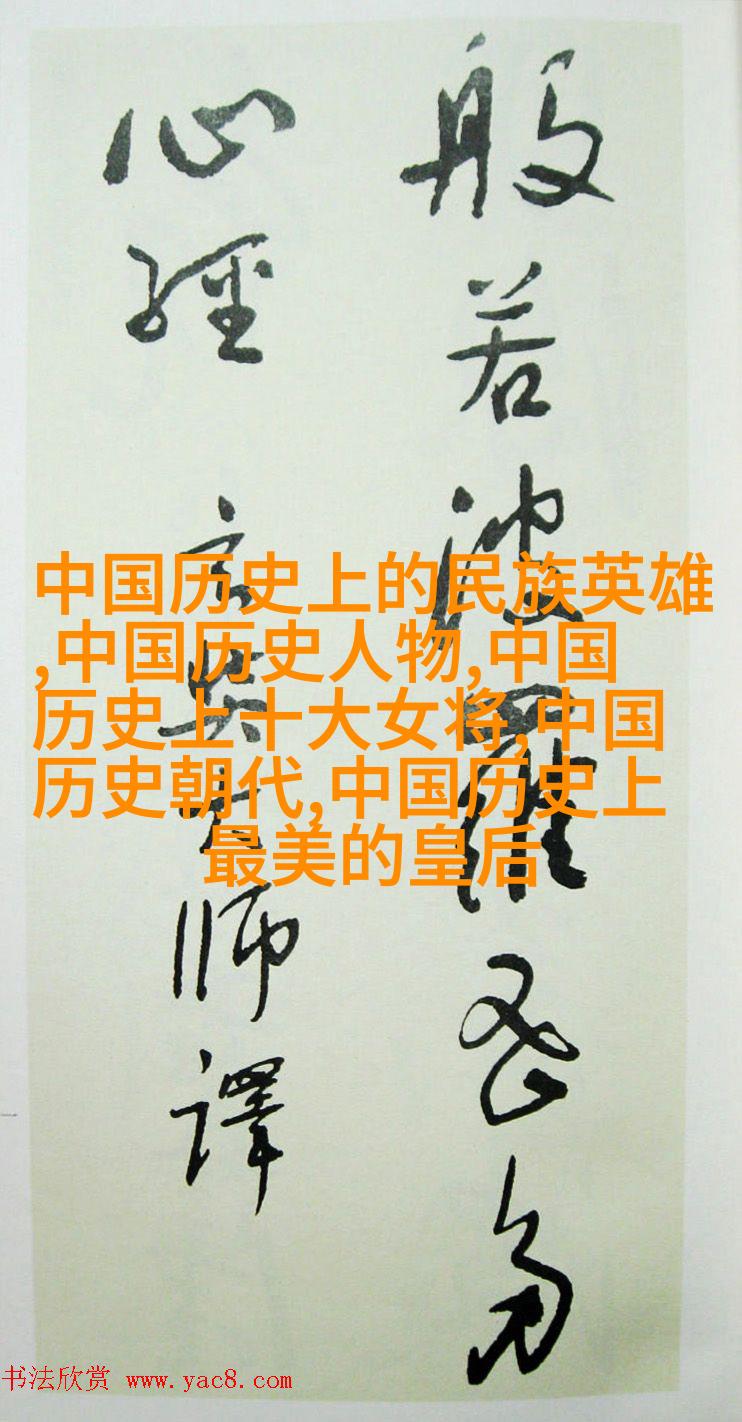 般若波羅蜜多
心經 玄奘大師譯
中国历史上的民族英雄
,中国历史人物,中国
历史上十大女将,中国
历史朝代,中国历史上
最美的皇后
书法欣赏 www.yac8.com